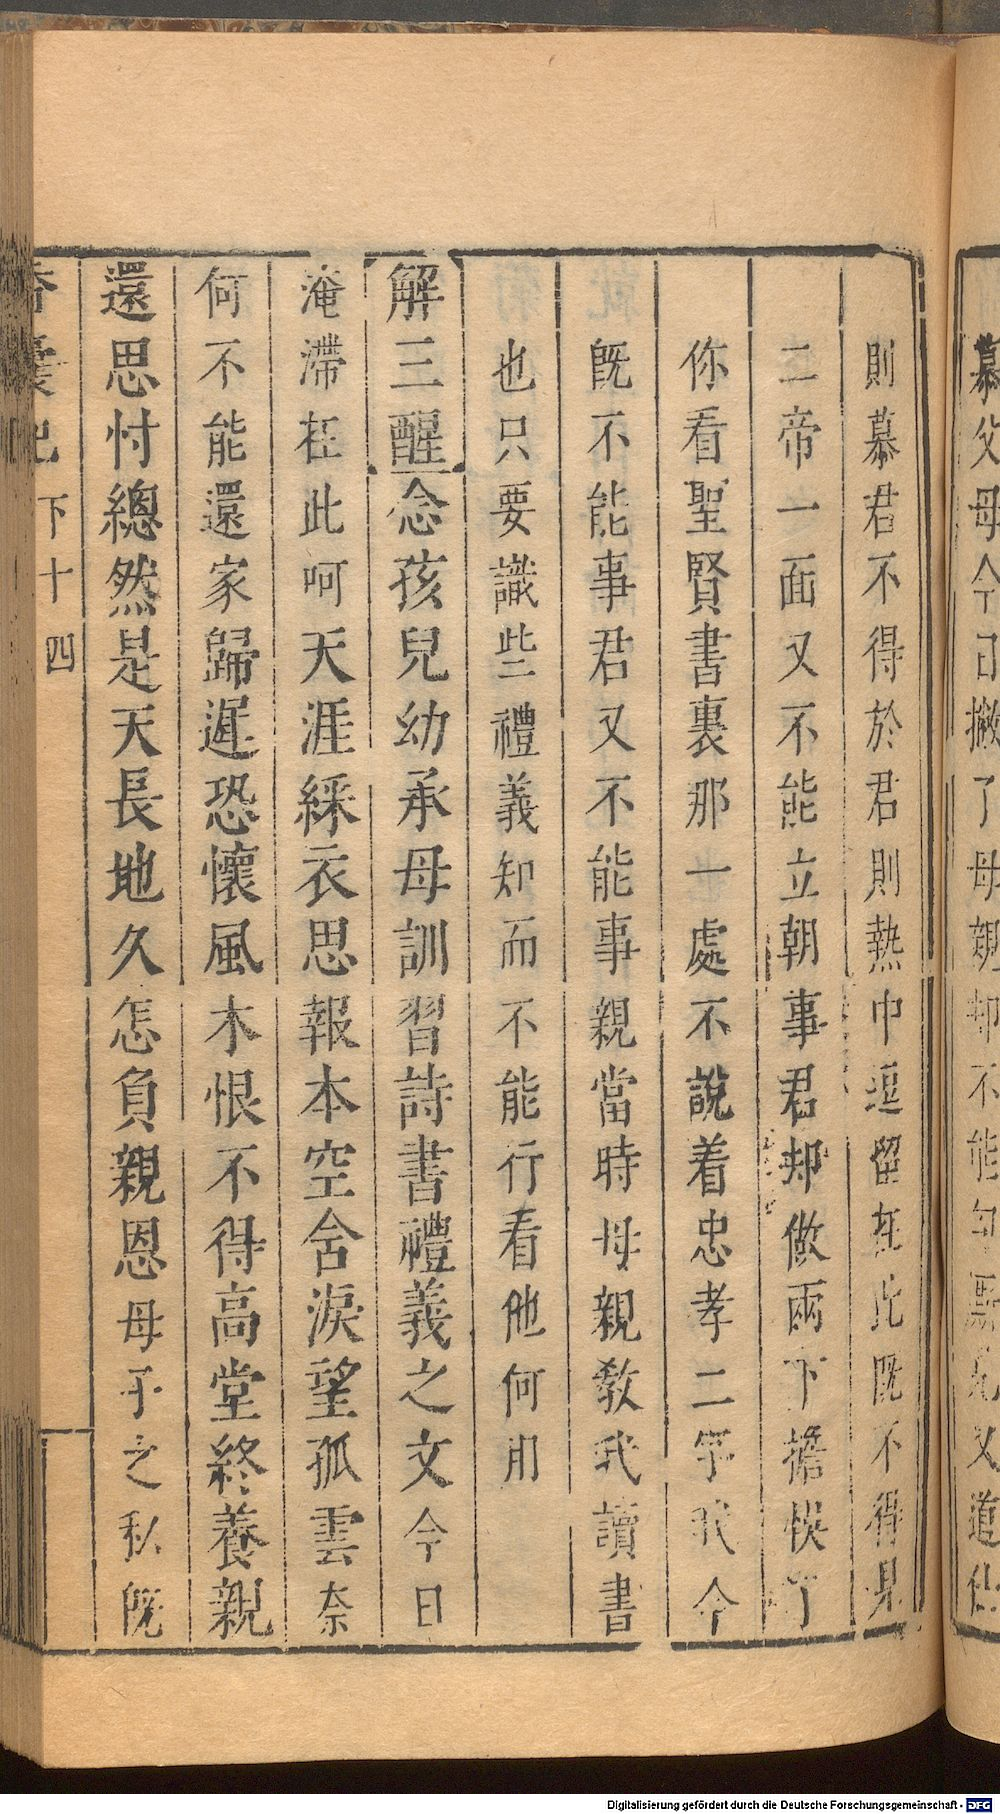 慕父母今日撇了母親却不能勾見又道仕
則慕君不得於君則熱中逗留在此既不得見
二帝一面又不能立朝事君却做兩下擔悞了
你看聖賢書裏那一處不說着忠孝二字我今
既不能事君又不能事親當時母親教我讀書
也只要識些禮義知而不能行看他何用
解三酲念孩兒幼承母訓習詩書禮義之文今日
淹滯在此呵天涯綵衣思報本空含淚望孤雲奈
何不能還家歸遲恐懷風木恨不得高堂終養親
還思忖總然是天長地久怎負親恩母子之私既
香囊記 下十四
Digitalisierung gefördert durch die Deutsche Forschungsgemeinschaft - DFG